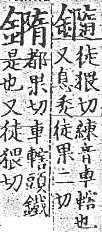 徒猥切車轄也
又息恚徒果二切
都果切車轄頭鐵
是也又徒猥切